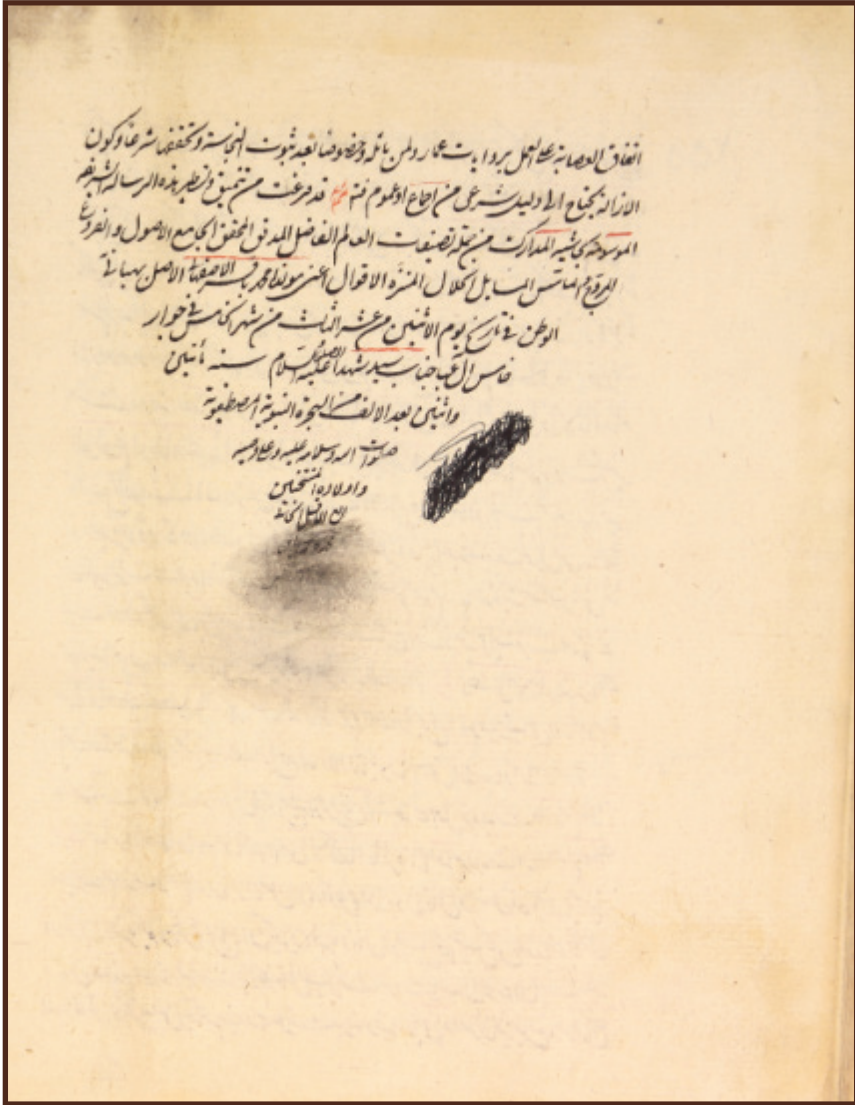 اتفاق العصابة على العمل بروايات عمار ولمن ماثله وخصوصا بعد ثبوت النجاسة وتحققها شرعا وكون
الازالة يحتاج الى دليل شرعى من اجماع او عموم فتم قد فرغت من تنميق وتسطير هذه الرسالة الشريفة
الموسومة بحاشية المدارك من جملة تصنيفات العالم الفاضل المدقق المحقق الجامع الاصول والفروع
المسايل الحلال المنزه الاقوال اعنى مولانا محمد باقر الاصفهانى الاصل بهبهانى
الوطن فى تاريخ يوم الاثنين من عشر الثالث من شهر الخامس فى جوار
خامس آل عبا جناب سيد شهدا عليه السلام سنة مأتين
واثنى بعد الالف من الهجرة النبوية المصطفوية
صلوات الله وسلامه عليه وعلى وصيه
واولاده المنتجبين